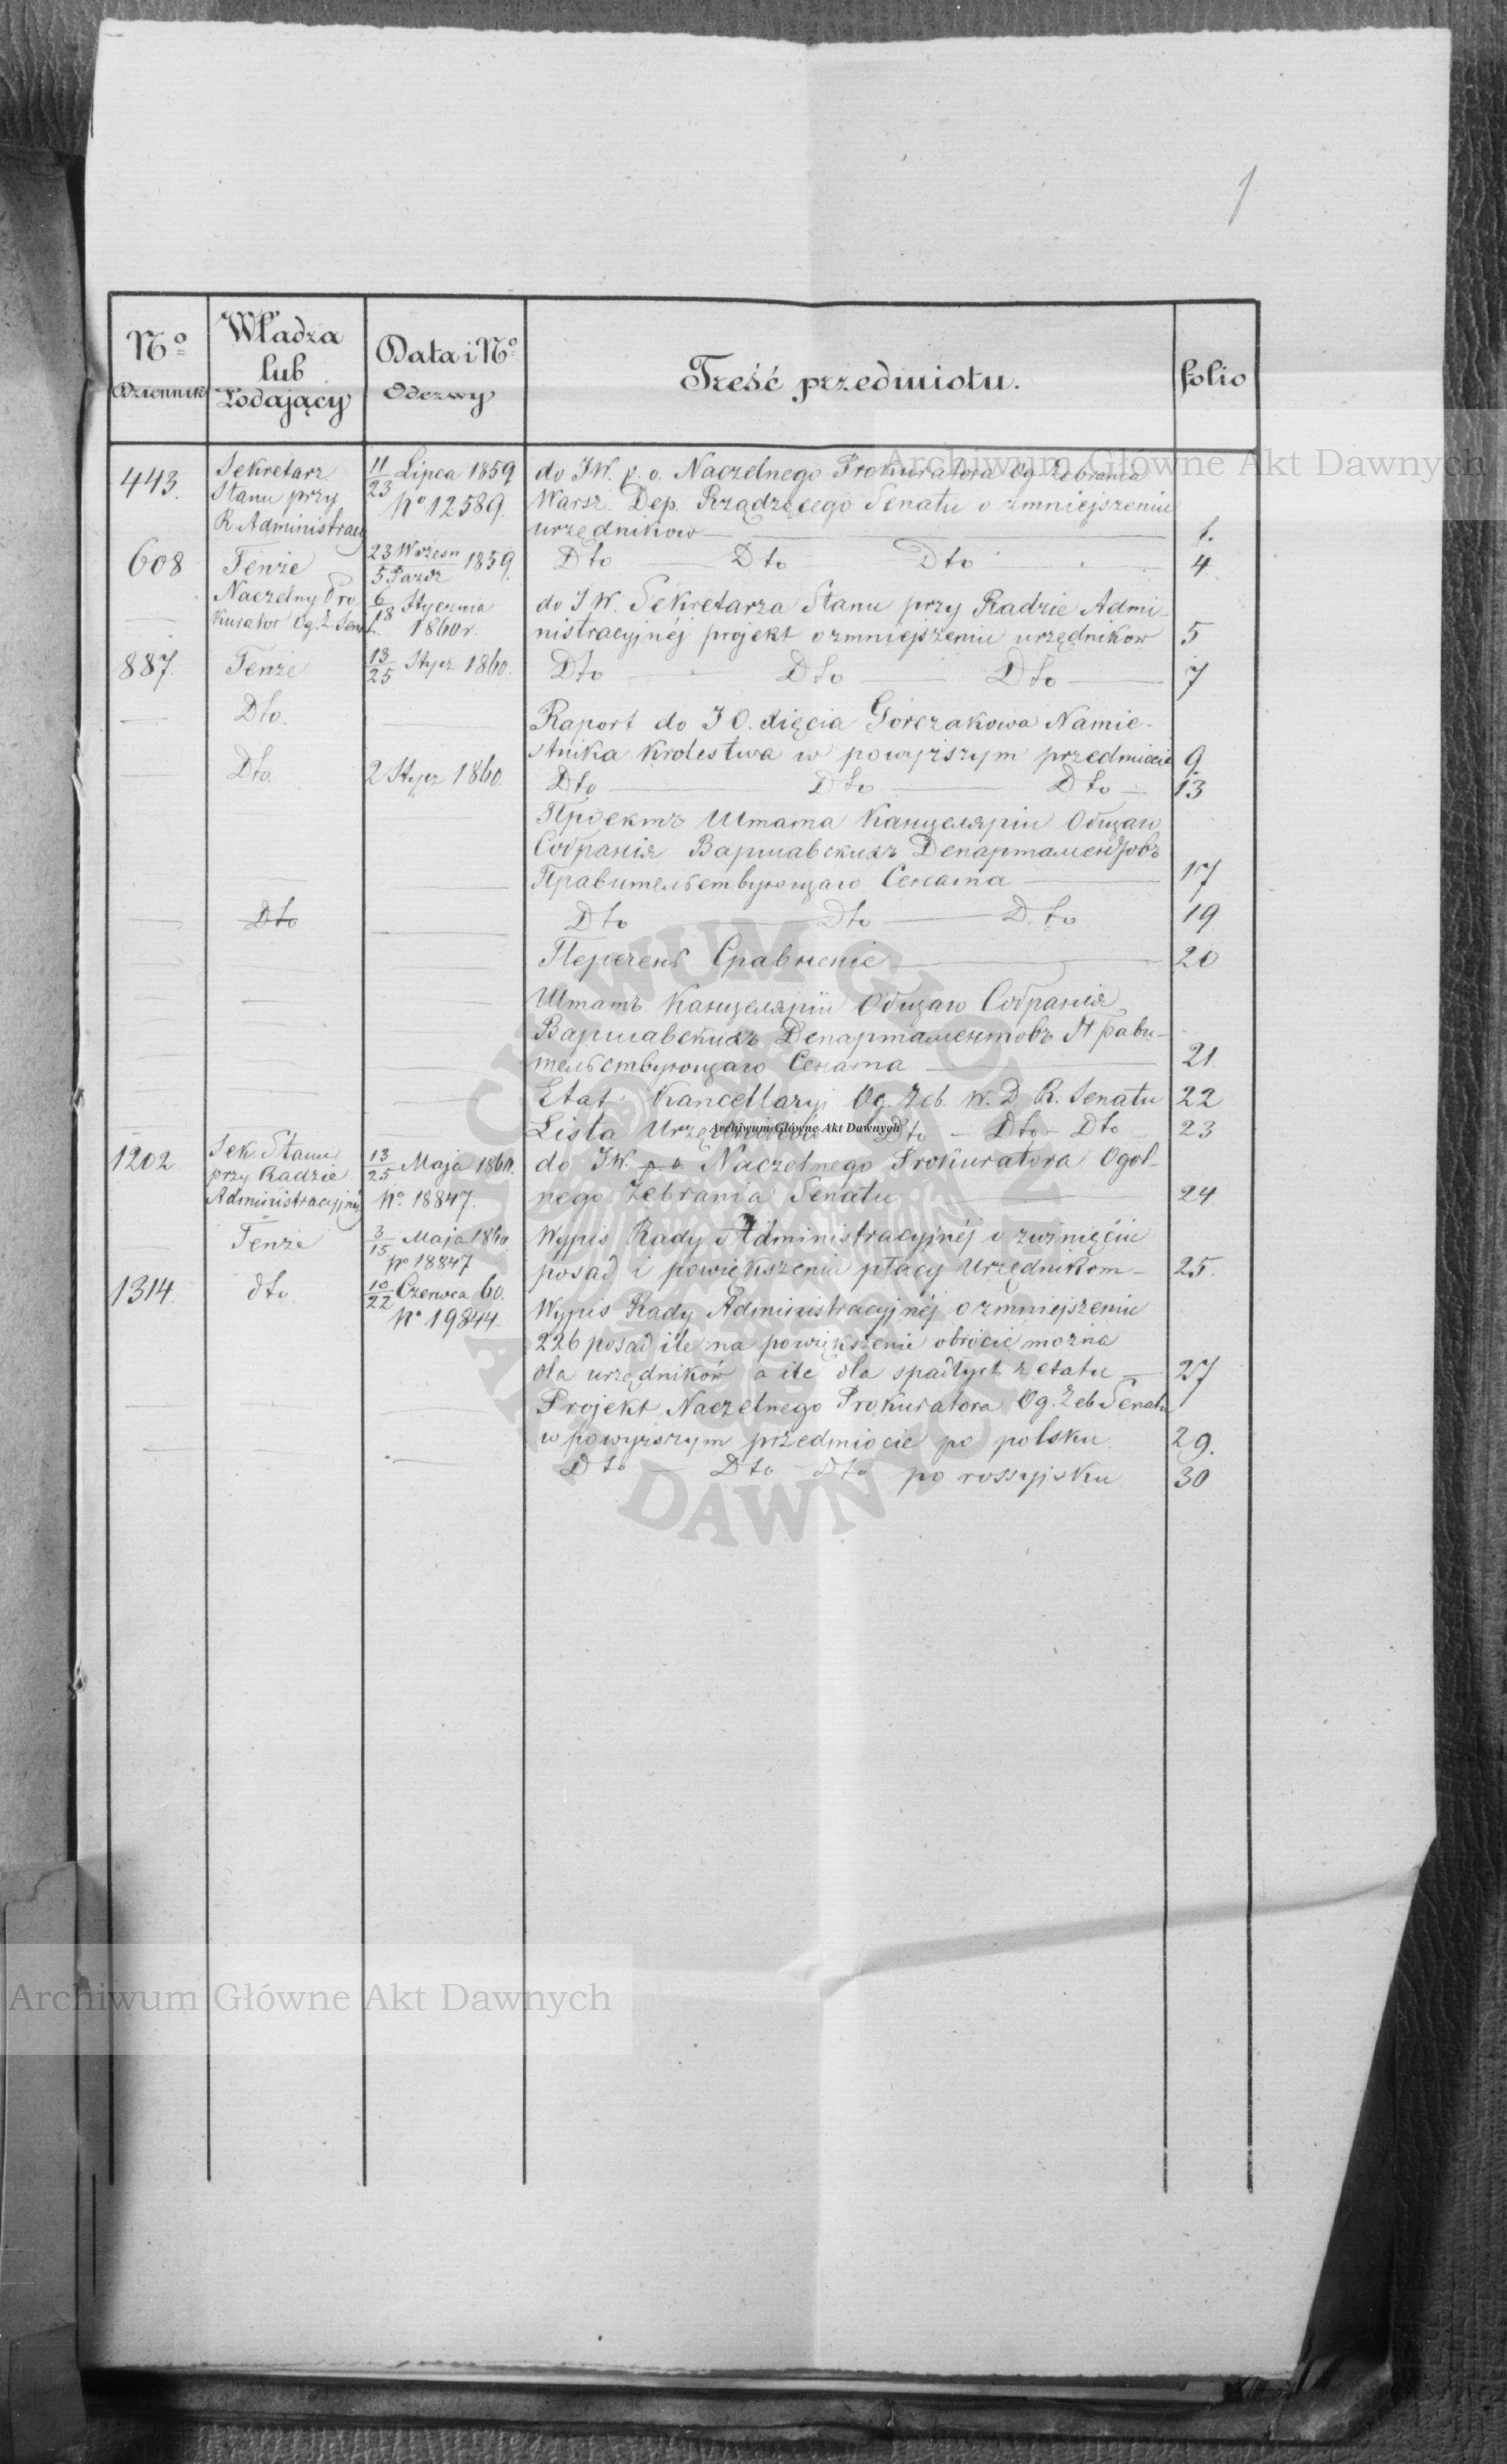 1
No Władza lub Podający Data i No Treść przedmiotu. folio
Dziennik Odezwy
443. Sekretarz 11/23 Lipca 1859 do JW. p. o. Naczelnego Prokuratora Og Zebrania
Stanu przy No 12589. Warsz. Dep. Rządzącego Senatu o zmniejszeniu
R Administracyj urzędnikow 1.
608 Tenże 23 Wrzesn/5 Pazdz 1859. Dto Dto Dto 4
Naczelny Pro 6/18 Stycznia do JW. Sekretarza Stanu przy Radzie Admi-
kurator Og. Z Senat 1860 r. nistracyjnéj projekt o zmniejszeniu urzędnikow 5
887. Tenże 13/25 Stycz 1860. Dto Dto Dto 7
Dto. Raport do J O. Xięcia Gorczakowa Namie-
stnika Krolestwa w powyższym przedmiocie 9.
Dto. 2 Stycz 1860. Dto Dto Dto 13
Проектъ Штата Канцеляріи Общаго
Собранія Варшавскихъ Департаментовъ
Правительствующаго Сената 17
Dto Dto Dto Dto 19
Перечень Сравненіе 20
Штатъ Канцеляріи Общаго Собранія
Варшавскихъ Департаментовъ Прави-
тельствующаго Сената 21
Etat Kancellaryi Og. Zeb. W. D R. Senatu 22
Lista Urzędników Dto - Dto - Dto 23
1202 Sek Stanu 13/25 Maja 1860. do JW. p o Naczelnego Prokuratora Ogol-
przy Radzie No 18847. nego Zebrania Senatu 24.
Administracyjnéj
Tenże 3/15 Maja 1860. Wypis Rady Administracyjnéj o zwinięciu
No 18847 posad i powiększeniu płacy Urzędnikom 25.
1314. dto 10/22 Czerwca 60. Wypis Rady Administracyjnéj o zmniejszeniu
No 19844. 226 posad ile na powiększenie obrócić można
dla urzędników a ile dla spadłych z etatu 27
Projekt Naczelnego Prokuratora Og. Zeb Senatu
w powyższym przedmiocie po polsku. 29.
Dto Dto Dto po rossyjsku 30
Archiwum Główne Akt Dawnych
Archiwum Główne Akt Dawnych
Archiwum Główne Akt Dawnych
ARCHIWUM GŁÓWNE AKT DAWNYCH